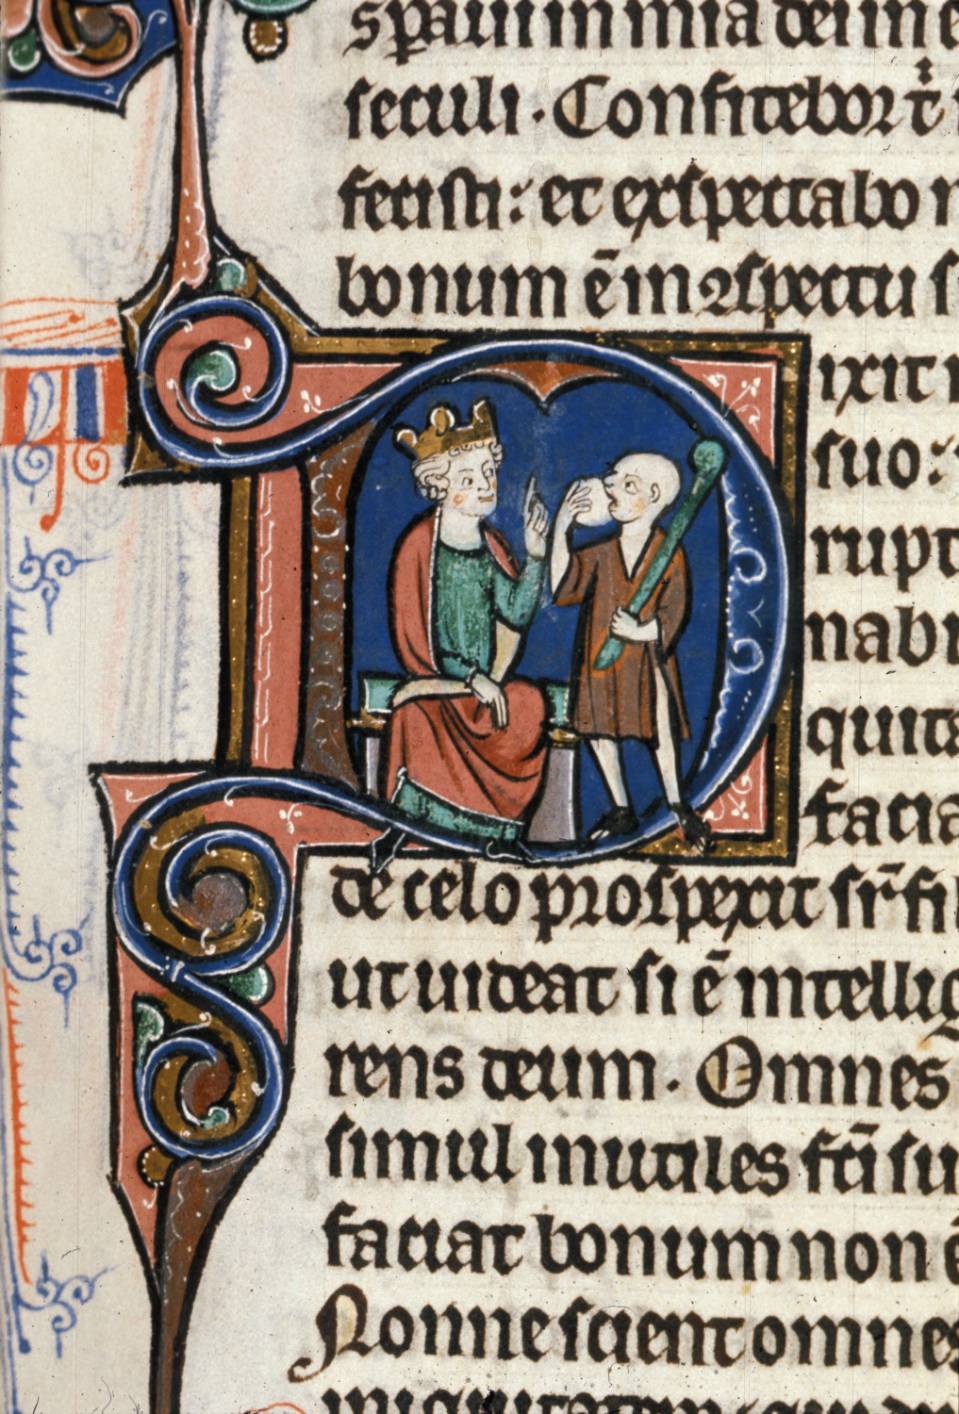 speraui in mia dei in e
seculi. Confitebor t̄
fecisti: et exspectabo n
bonum ē in ꝯspectu s
Dixit i
suo:
rupt
nabi
quita
facia
de celo prospexit sr̄ fi
ut uideat si ē intellig
rens deum. Omnes
simul inutiles fc̄i su
faciat bonum non ē
Nonne scient omnes
iniquitatem